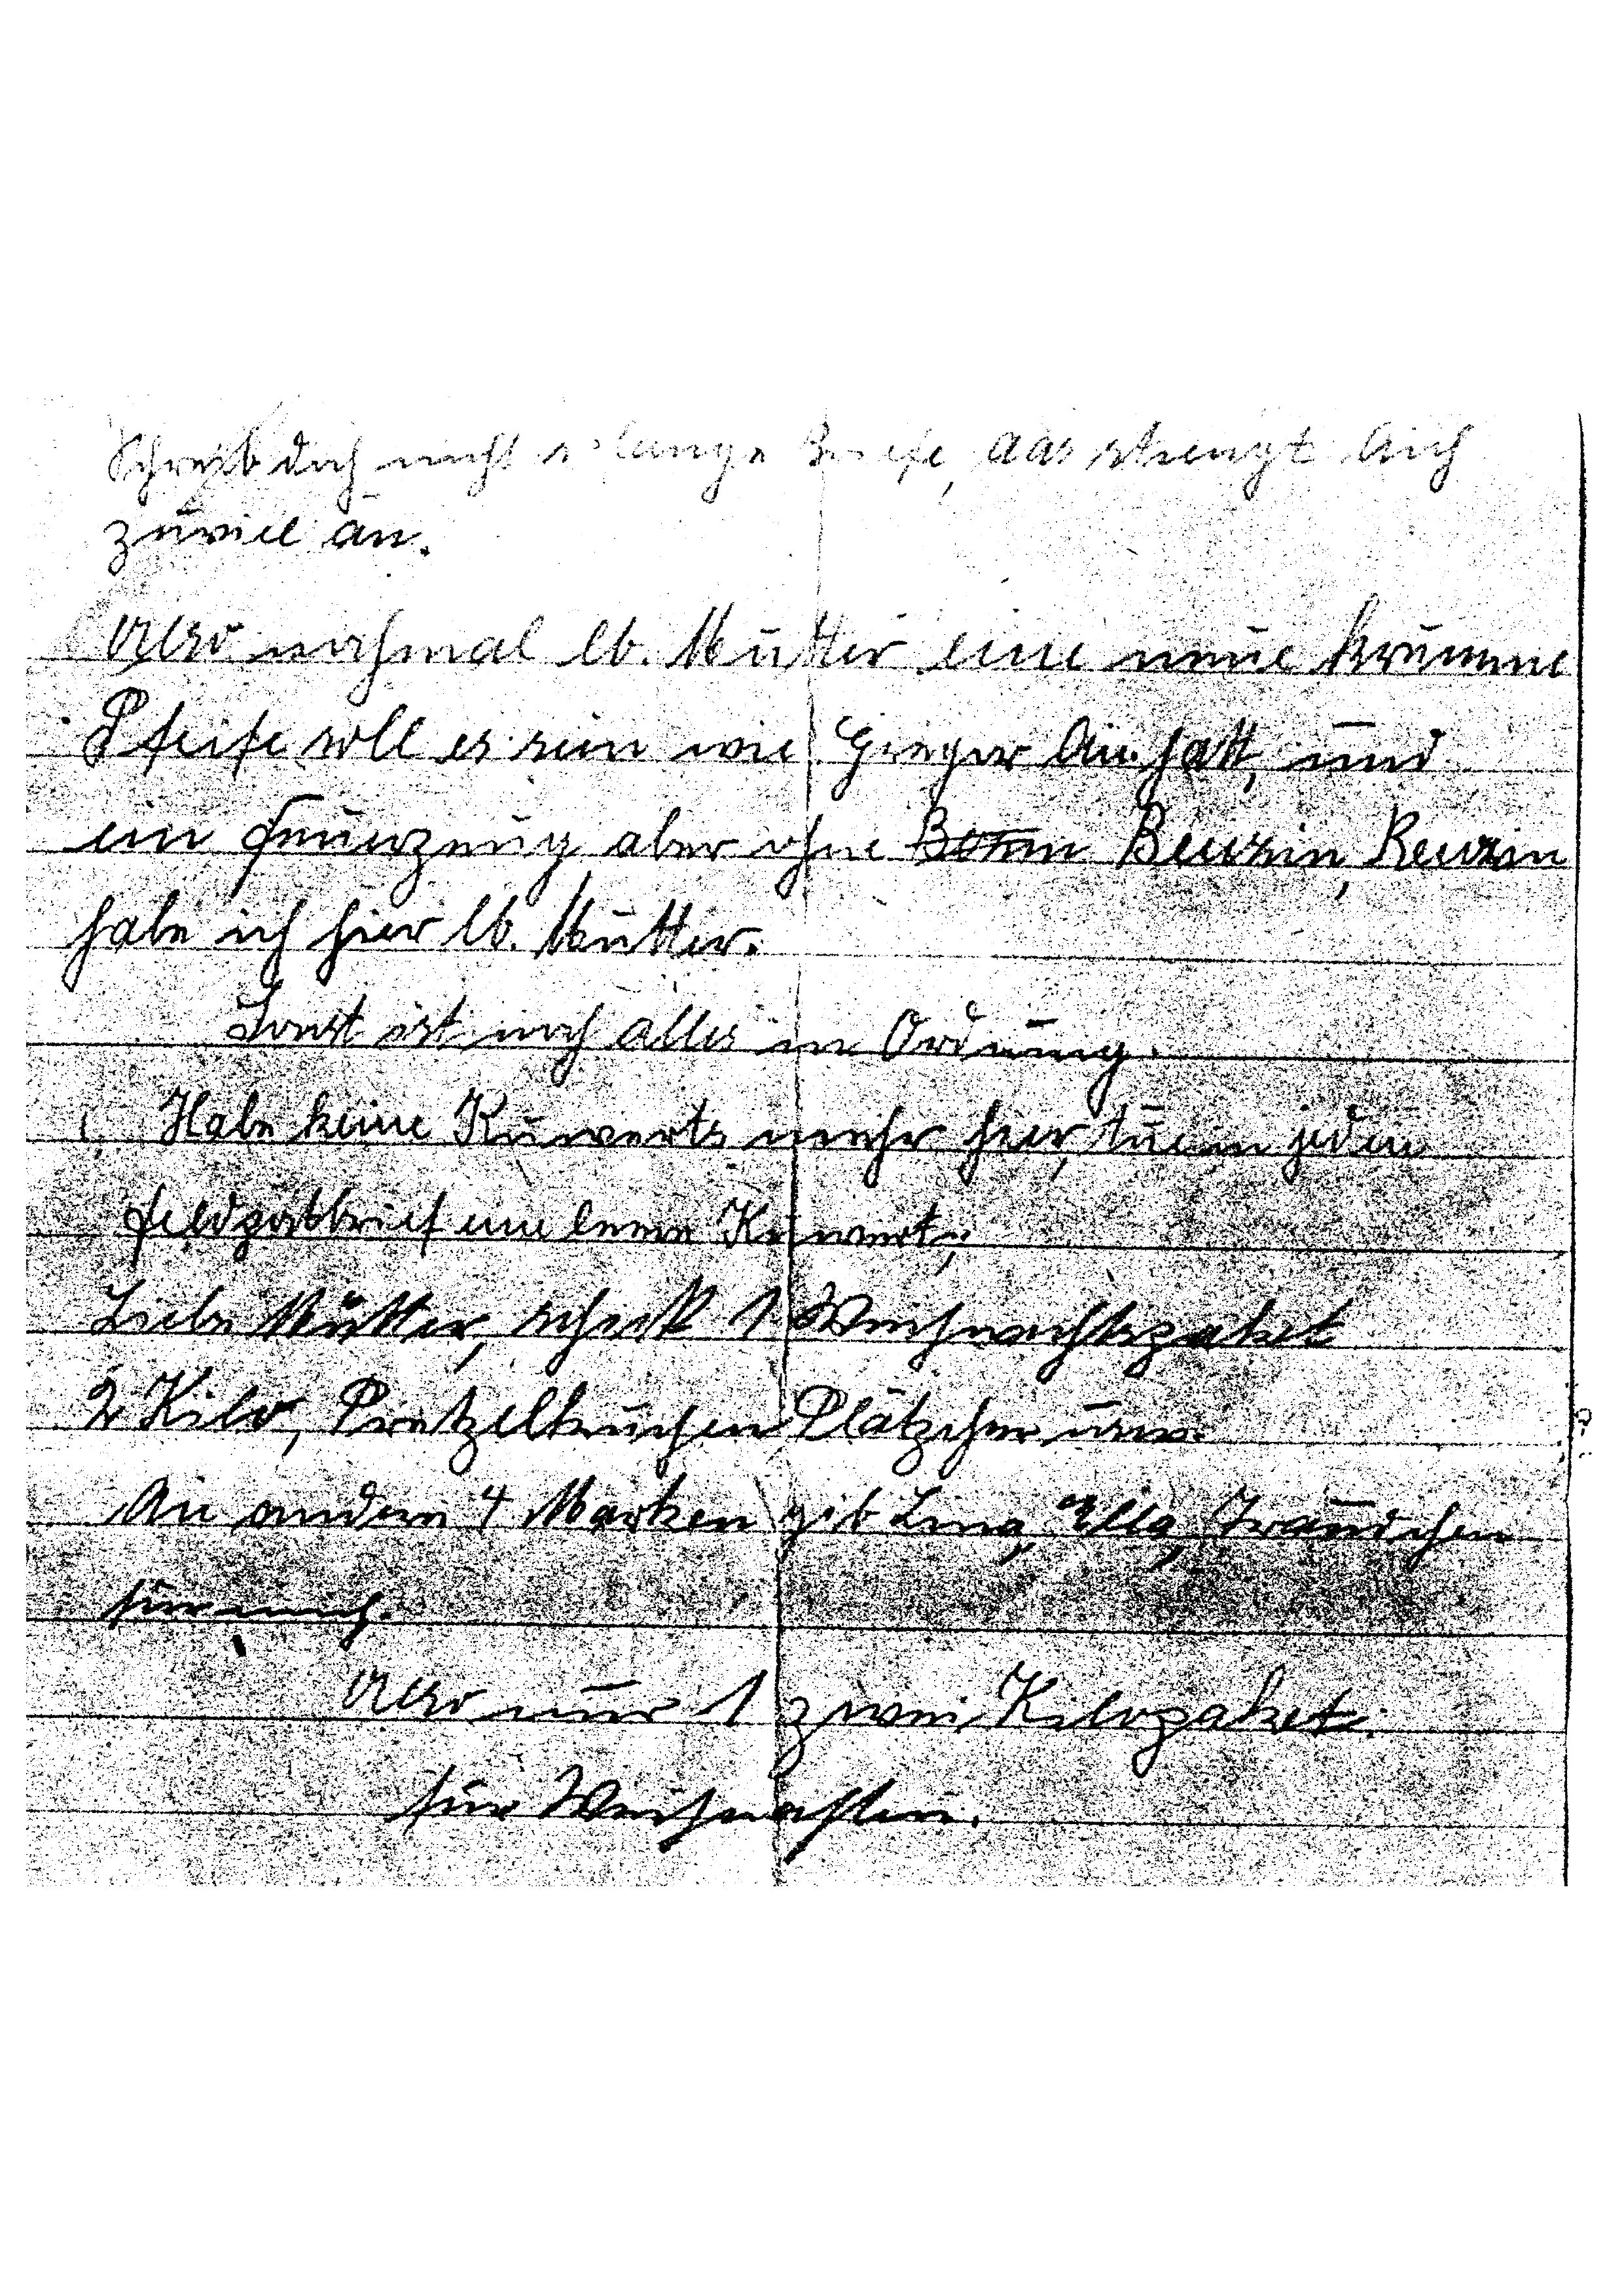 Schreib doch nicht so lange Briefe, das strengt Dich
zuviel an.
Also nochmal lb. Mutter eine neue krumme
Pfeife soll es sein wie Gregor Ain hatt, und
ein Feuerzeug aber ohne Benzin, Benzin
habe ich hier lb. Mutter.
Sonst ist noch alles in Ordnung.
Habe keine Kuwerts mehr hier, tue in jeden
Feldpostbrief eine leere Kuwert,
Liebe Mutter, schick 1 Weihnachtspaket
2 Kilo, Pretzelkuchen Plätzchen usw.
Die andern 4 Marken gib Lina, Ella, Traudchen
für mich.
Also nur 1 zwei Kilopaket.
für Weihnachten.